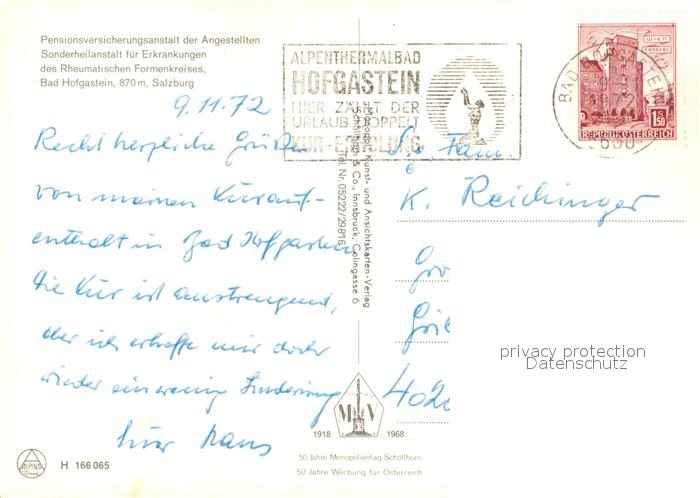 Pensionsversicherungsanstalt der Angestellten
Sonderheilanstalt für Erkrankungen
des Rheumatischen Formenkreises,
Bad Hofgastein, 870 m, Salzburg
9.11.72
Recht herzliche Grüße
von meinem Kurauf-
enthalt in Bad Hofgastein
die Kur ist anstrengend,
aber ich erhoffe mir doch
wieder ein wenig Linderung
Euer Hans
ALPENTHERMALBAD
HOFGASTEIN
HIER ZÄHLT DER
URLAUB DOPPELT
KUR - ERHOLUNG
WIEN
ERDBERG
1.50
REPUBLIK ÖSTERREICH
BAD HOFGASTEIN
Fam.
K. Reichinger
402
Kunst- und Ansichtskarten-Verlag
& Co., Innsbruck, Colingasse 6
Tel. Nr. 05222/29816
M V
1918 1968
50 Jahre Monopolverlag Schöllhorn
50 Jahre Werbung für Österreich
ALPINA
H 166 065
privacy protection
Datenschutz